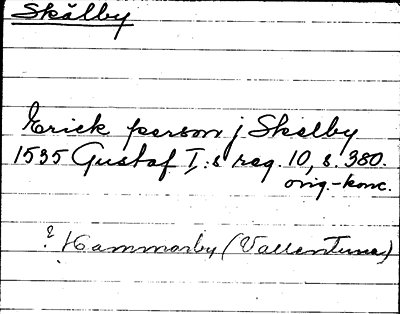 Skälby
Erick person j Skelby
1535 Gustaf I:s reg. 10, s. 380.
orig.-konc.
? Hammarby (Vallentuna)